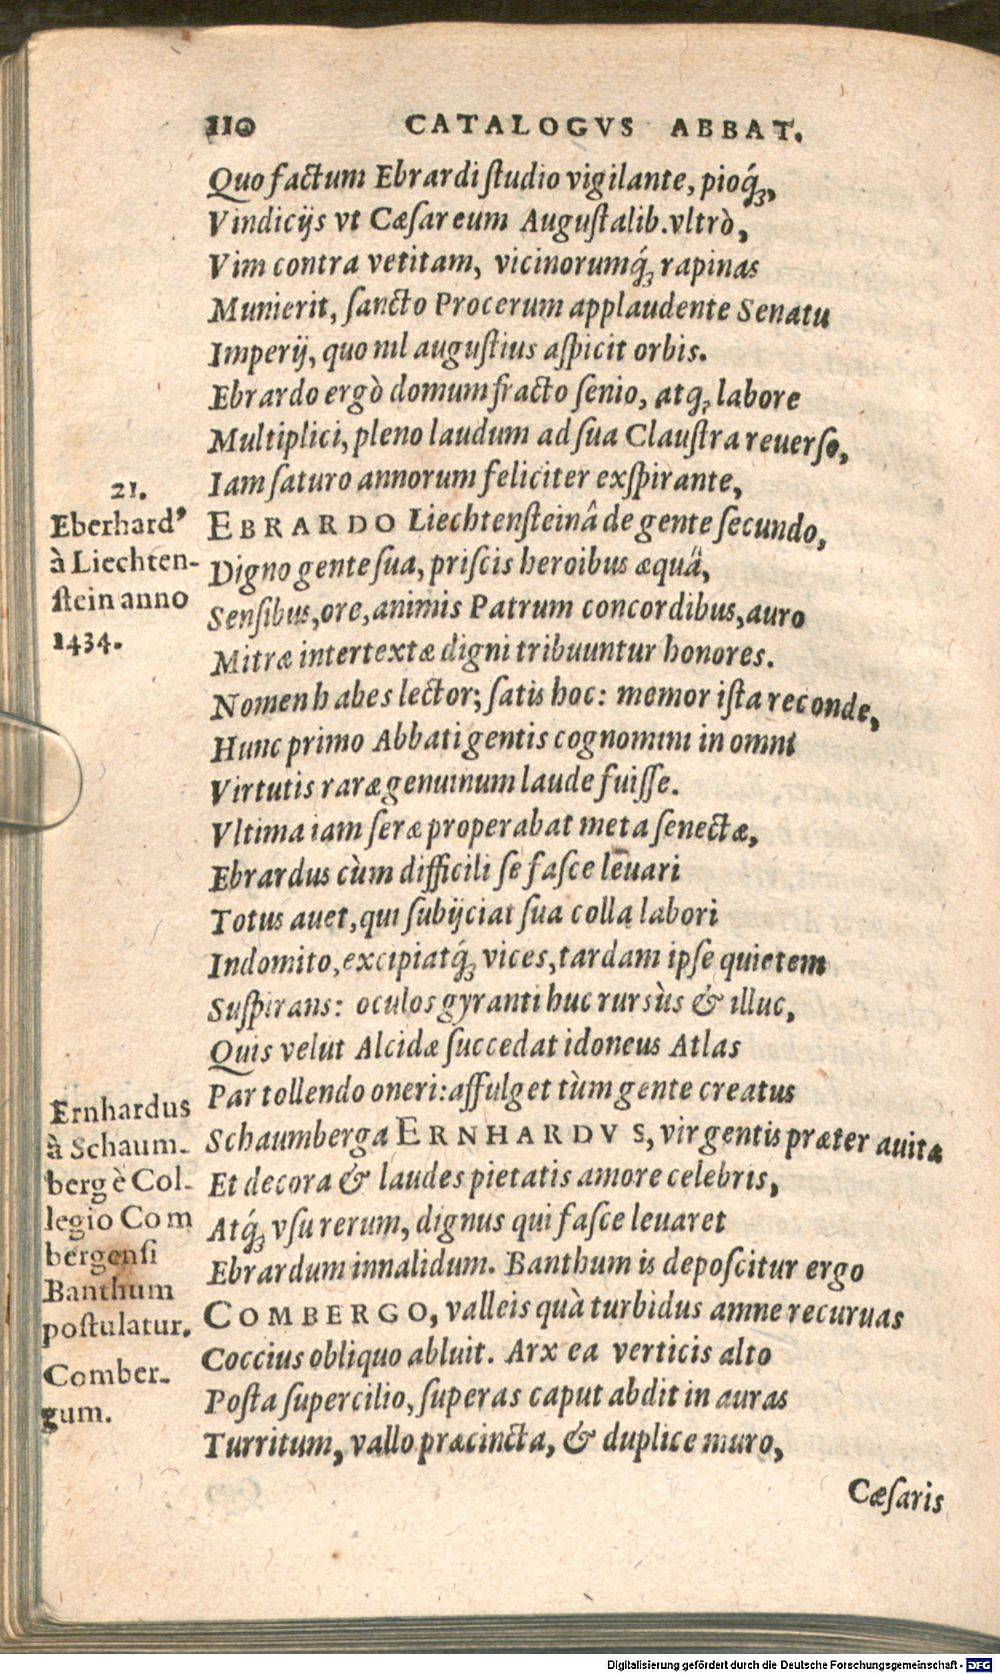 110 CATALOGVS ABBAT.
Quo factum Ebrardi ſtudio vigilante, pioq́ꝫ,
Vindicijs vt Cæſareum Auguſtalib. vltrò,
Vim contra vetitam, vicinorumq́ꝫ rapinas
Munierit, ſancto Procerum applaudente Senatu
Imperij, quo nil auguſtius aſpicit orbis.
Ebrardo ergò domum fracto ſenio, atqꝫ labore
Multiplici, pleno laudum ad ſua Clauſtra reuerſo,
Iam ſaturo annorum feliciter exſpirante,
EBRARDO Liechtenſteinâ de gente ſecundo,
Digno gente ſua, priſcis heroibus æquä,
Senſibus, ore, animis Patrum concordibus, auro
Mitræ intertextæ digni tribuuntur honores.
Nomen habes lector; ſatis hoc: memor iſta reconde,
Hunc primo Abbati gentis cognomini in omni
Virtutis raræ genuinum laude fuiſſe.
Vltima iam ſeræ properabat meta ſenectæ,
Ebrardus cùm difficili ſe faſce leuari
Totus auet, qui ſubijciat ſua colla labori
Indomito, excipiatq́ꝫ vices, tardam ipſe quietem
Suſpirans: oculos gyranti huc rursùs & illuc,
Quis velut Alcidæ ſuccedat idoneus Atlas
Par tollendo oneri: affulget tùm gente creatus
Schaumberga ERNHARDVS, vir gentis præter auita
Et decora & laudes pietatis amore celebris,
Atq́ꝫ vſu rerum, dignus qui faſce leuaret
Ebrardum inualidum. Banthum is depoſcitur ergo
COMBERGO, valleis quà turbidus amne recuruas
Coccius obliquo abluit. Arx ea verticis alto
Poſta ſupercilio, ſuperas caput abdit in auras
Turritum, vallo præcincta, & duplice muro,
Cæſaris
21.
Eberhardꝰ
à Liechten-
ſtein anno
1434.
Ernhardus
à Schaum-
berg è Col-
legio Com
bergenſi
Banthum
poſtulatur.
Comber-
gum.
Digitalisierung gefördert durch die Deutsche Forschungsgemeinschaft - DFG